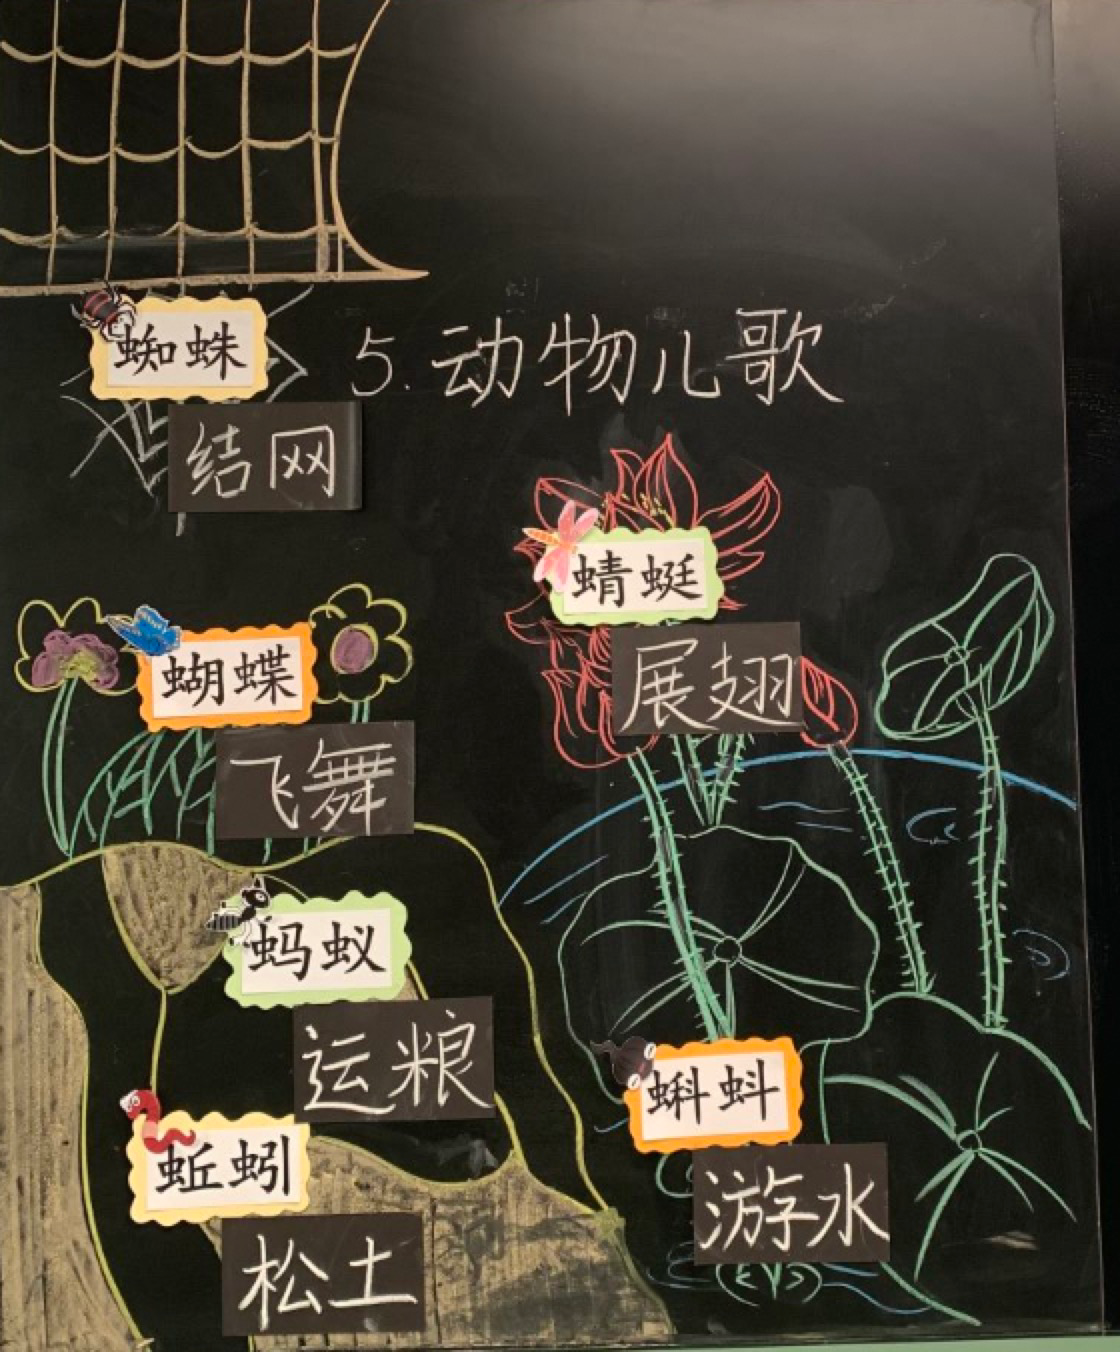 5.动物儿歌
蜘蛛
结网
蜻蜓
展翅
蝴蝶
飞舞
蚂蚁
运粮
蝌蚪
游水
蚯蚓
松土